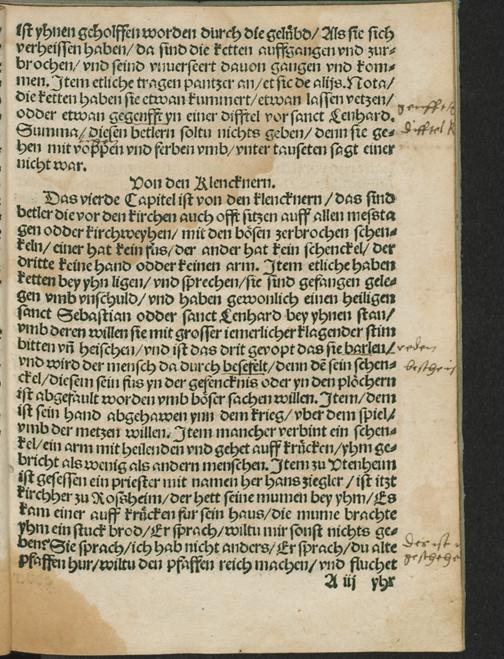 ist yhnen geholffen worden durch die gelübd/ Als sie sich
verheissen haben/ da sind die ketten auffgangen vnd zur-
brochen/ vnd seind vnuerseert dauon gangen vnd kom-
men. Item etliche tragen pantzer an/ et sic de alijs. Nota/
die ketten haben sie etwan kummert/ etwan lassen vetzen/
odder etwan gegenfft yn einer difftel vor sanct Lenhard.
Summa/ diesen betlern soltu nichts geben/ denn sie ge-
hen mit voppen vnd ferben vmb/ vnter tauseten sagt einer
nicht war.
Von den Klencknern.
Das vierde Capitel ist von den klencknern/ das sind
betler die vor den kirchen auch offt sitzen auff allen messta
gen odder kirchweyhen/ mit den bösen zerbrochen schen-
keln/ einer hat kein fus/ der ander hat kein schenckel/ der
dritte keine hand odder keinen arm. Item etliche haben
ketten bey yhn ligen/ vnd sprechen/ sie sind gefangen gele-
gen vmb vnschuld/ vnd haben gewonlich einen heiligen
sanct Sebastian odder sanct Lenhard bey yhnen stan/
vmb deren willen sie mit grosser iemerlicher klagender stim
bitten vñ heischen/ vnd ist das drit gevopt das sie barlen/
vnd wird der mensch da durch besefelt/ denn dē sein schen-
ckel/ diesem sein fus yn der gefencknis oder yn den plöchern
ist abgefault worden vmb böser sachen willen. Item/ dem
ist sein hand abgehawen ynn dem krieg/ vber dem spiel/
vmb der metzen willen. Item mancher verbint ein schen-
kel/ ein arm mit heilenden vnd gehet auff krücken/ yhm ge-
bricht als wenig als andern menschen. Item zu Vtenheim
ist gesessen ein priester mit namen her hans ziegler/ ist itzt
kirchher zu Rosheim/ der hett seine mumen bey yhm/ Es
kam einer auff krücken fur sein haus/ die mume brachte
yhm ein stuck brod/ Er sprach/ wiltu mir sonst nichts ge-
ben? Sie sprach/ ich hab nicht anders/ Er sprach/ du alte
Pfaffen hur/ wiltu den pfaffen reich machen/ vnd fluchet
A iij yhr
reden